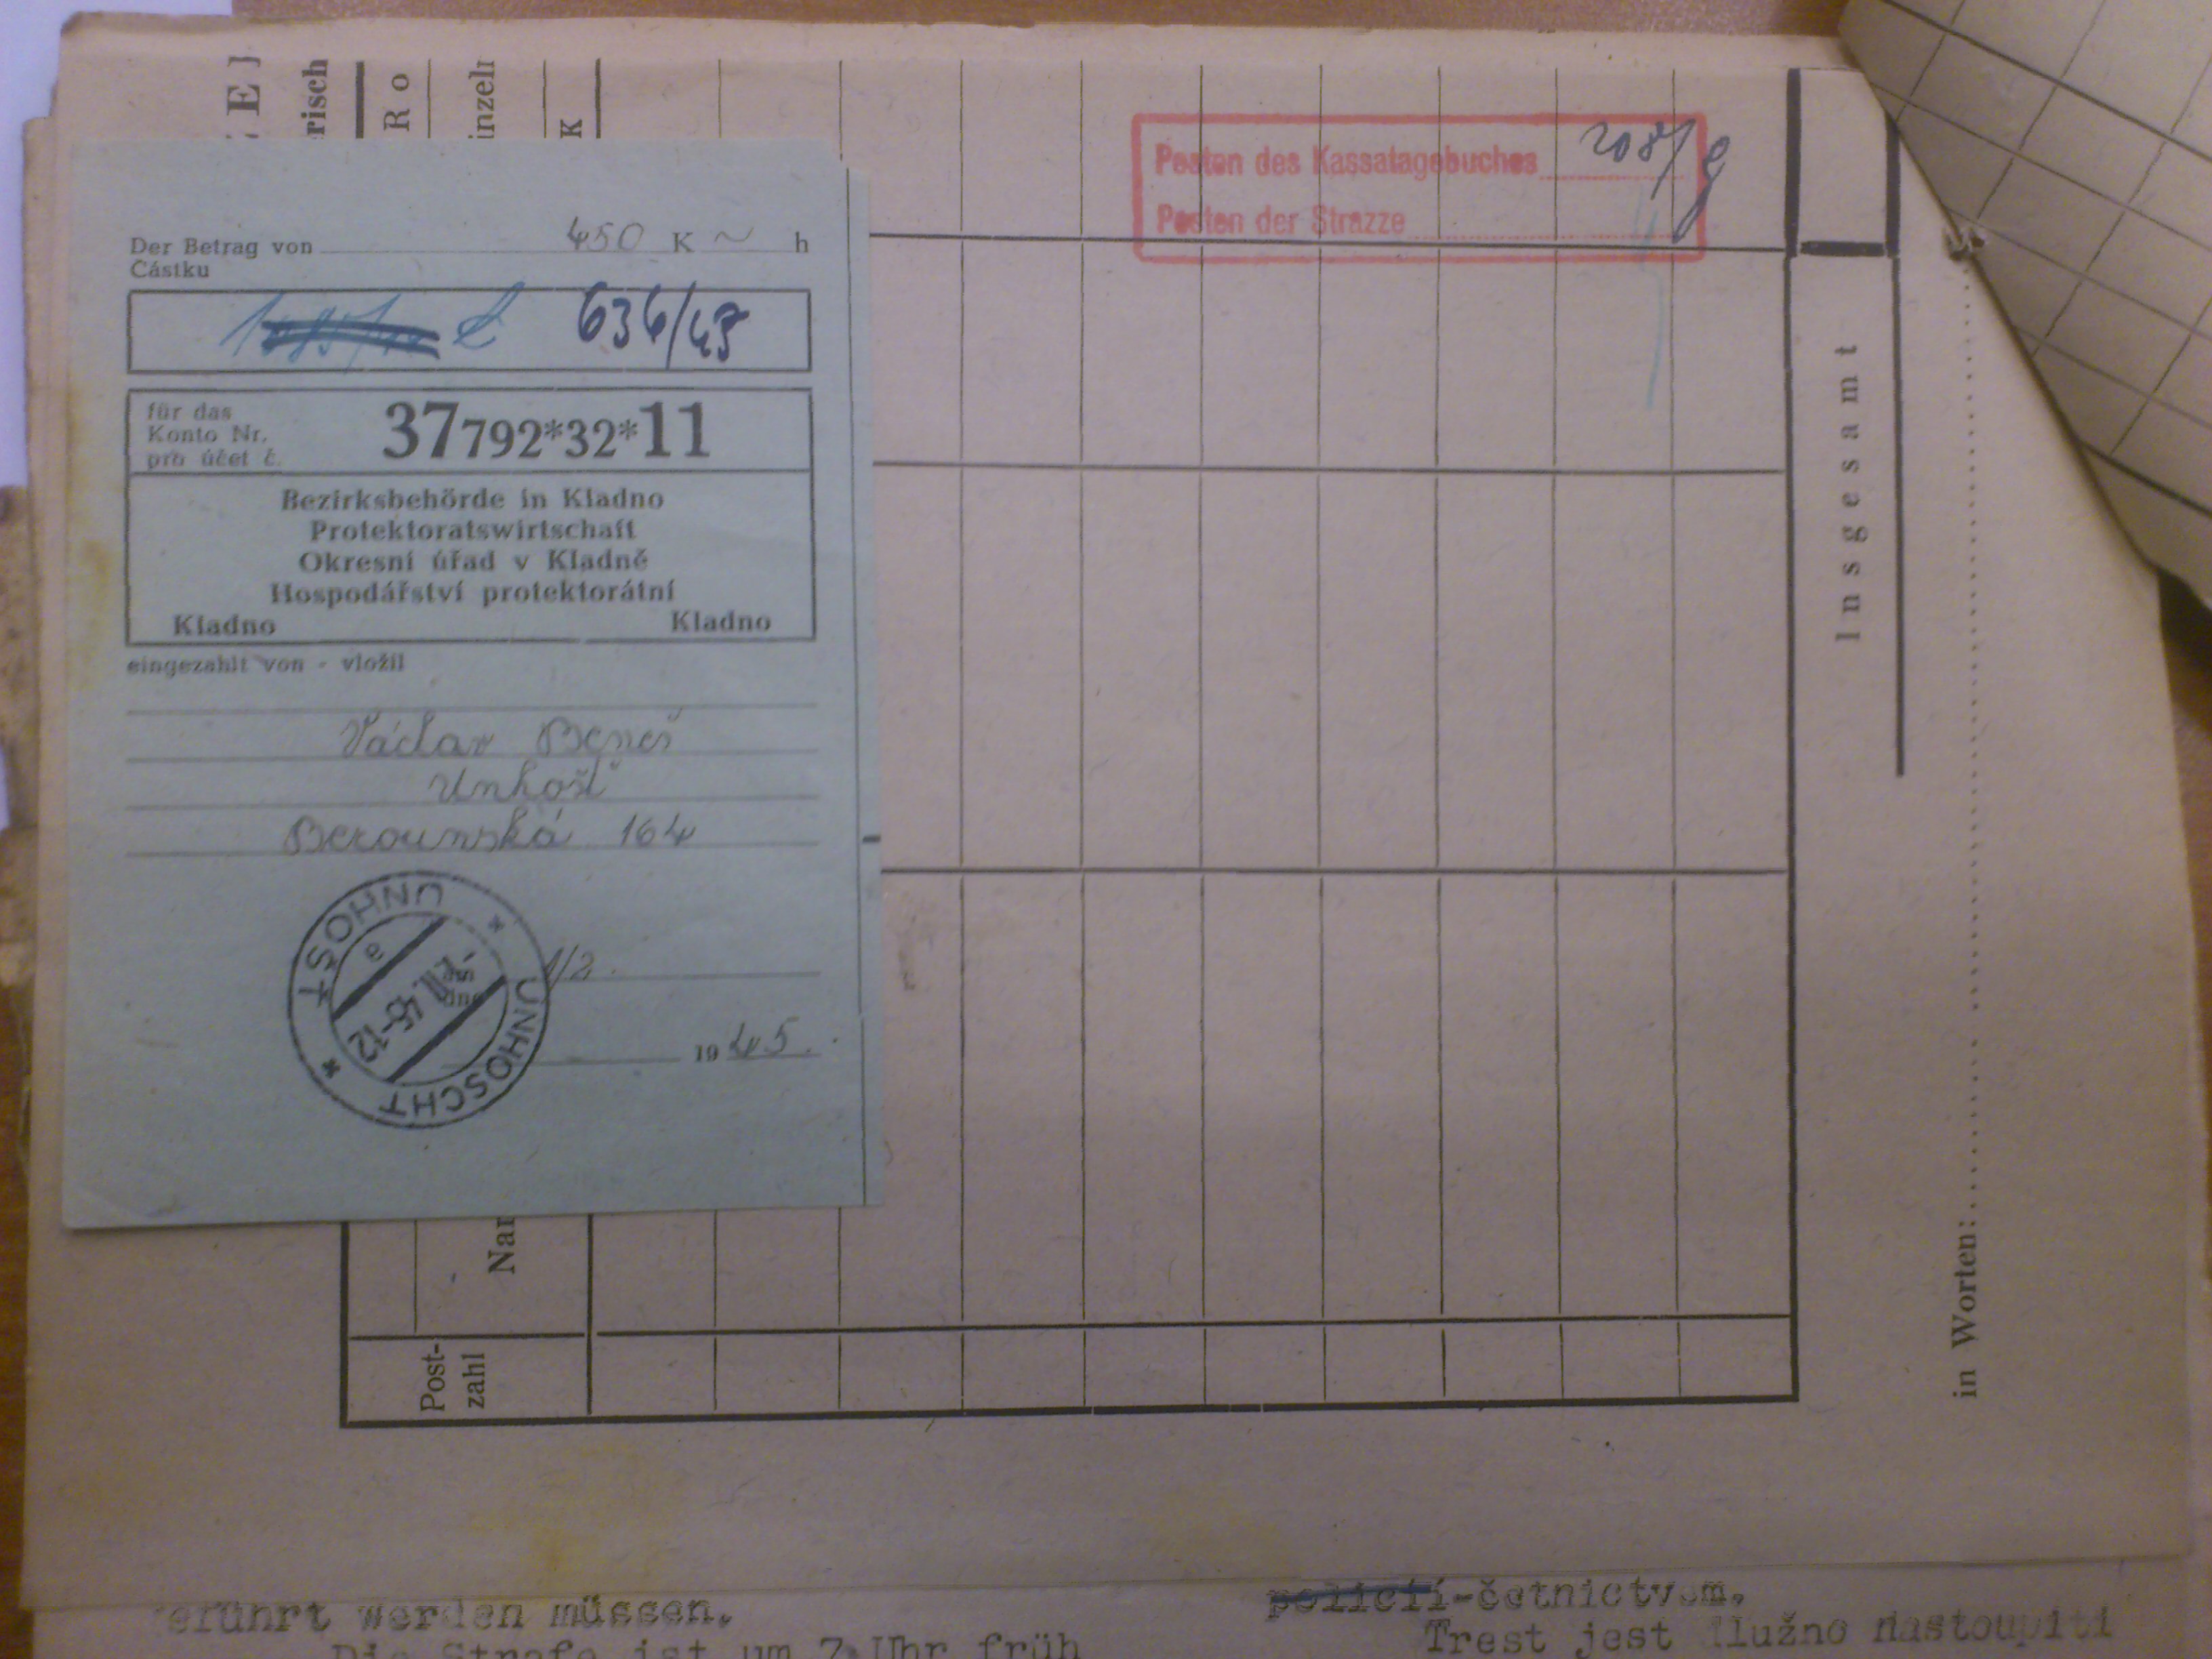 Der Betrag von 450 K ~ h
Částku
636/43
für das
Konto Nr.
pro účet č.
37792*32*11
Bezirksbehörde in Kladno
Protektoratswirtschaft
Okresní úřad v Kladně
Hospodářství protektorátní
Kladno Kladno
eingezahlt von - vložil
Václav Beneš
Unhošť
Berounská 164
UNHOŠŤ
a
45-12
UNHOSCHT
1/2.
1945.
risch
R o
inzeln
K
Posten des Kassatagebuches 208/
Posten der Strazze
Insgesamt
in Worten:
Nar
Post-
zahl
eführt werden müssen.
Die Strafe ist um 7 Uhr früh
policií-četnictvem.
Trest jest dlužno nastoupiti